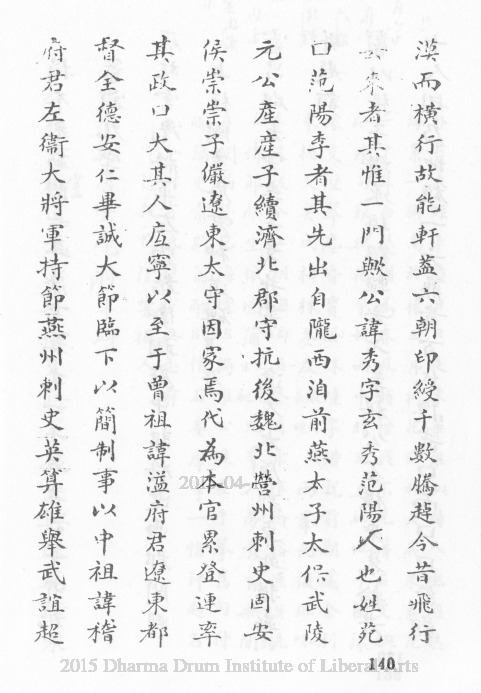 漠而橫行故能軒蓋六朝印綬千數騰趠今昔飛行
去來者其惟一門歟公諱秀字玄秀范陽人也姓苑
口范陽李者其先出自隴西洎前燕太子太保武陵
元公產產子續濟北郡守抗後魏北營州刺史固安
侯崇崇子儼遼東太守因家焉代為本官累登連率
其政口大其人庶寧以至于曾祖諱溢府君遼東都
督全德安仁畢誠大節臨下以簡制事以中祖諱稽
府君左衞大將軍持節燕州刺史英算雄舉武誼超
140
2015 Dharma Drum Institute of Liberal Arts